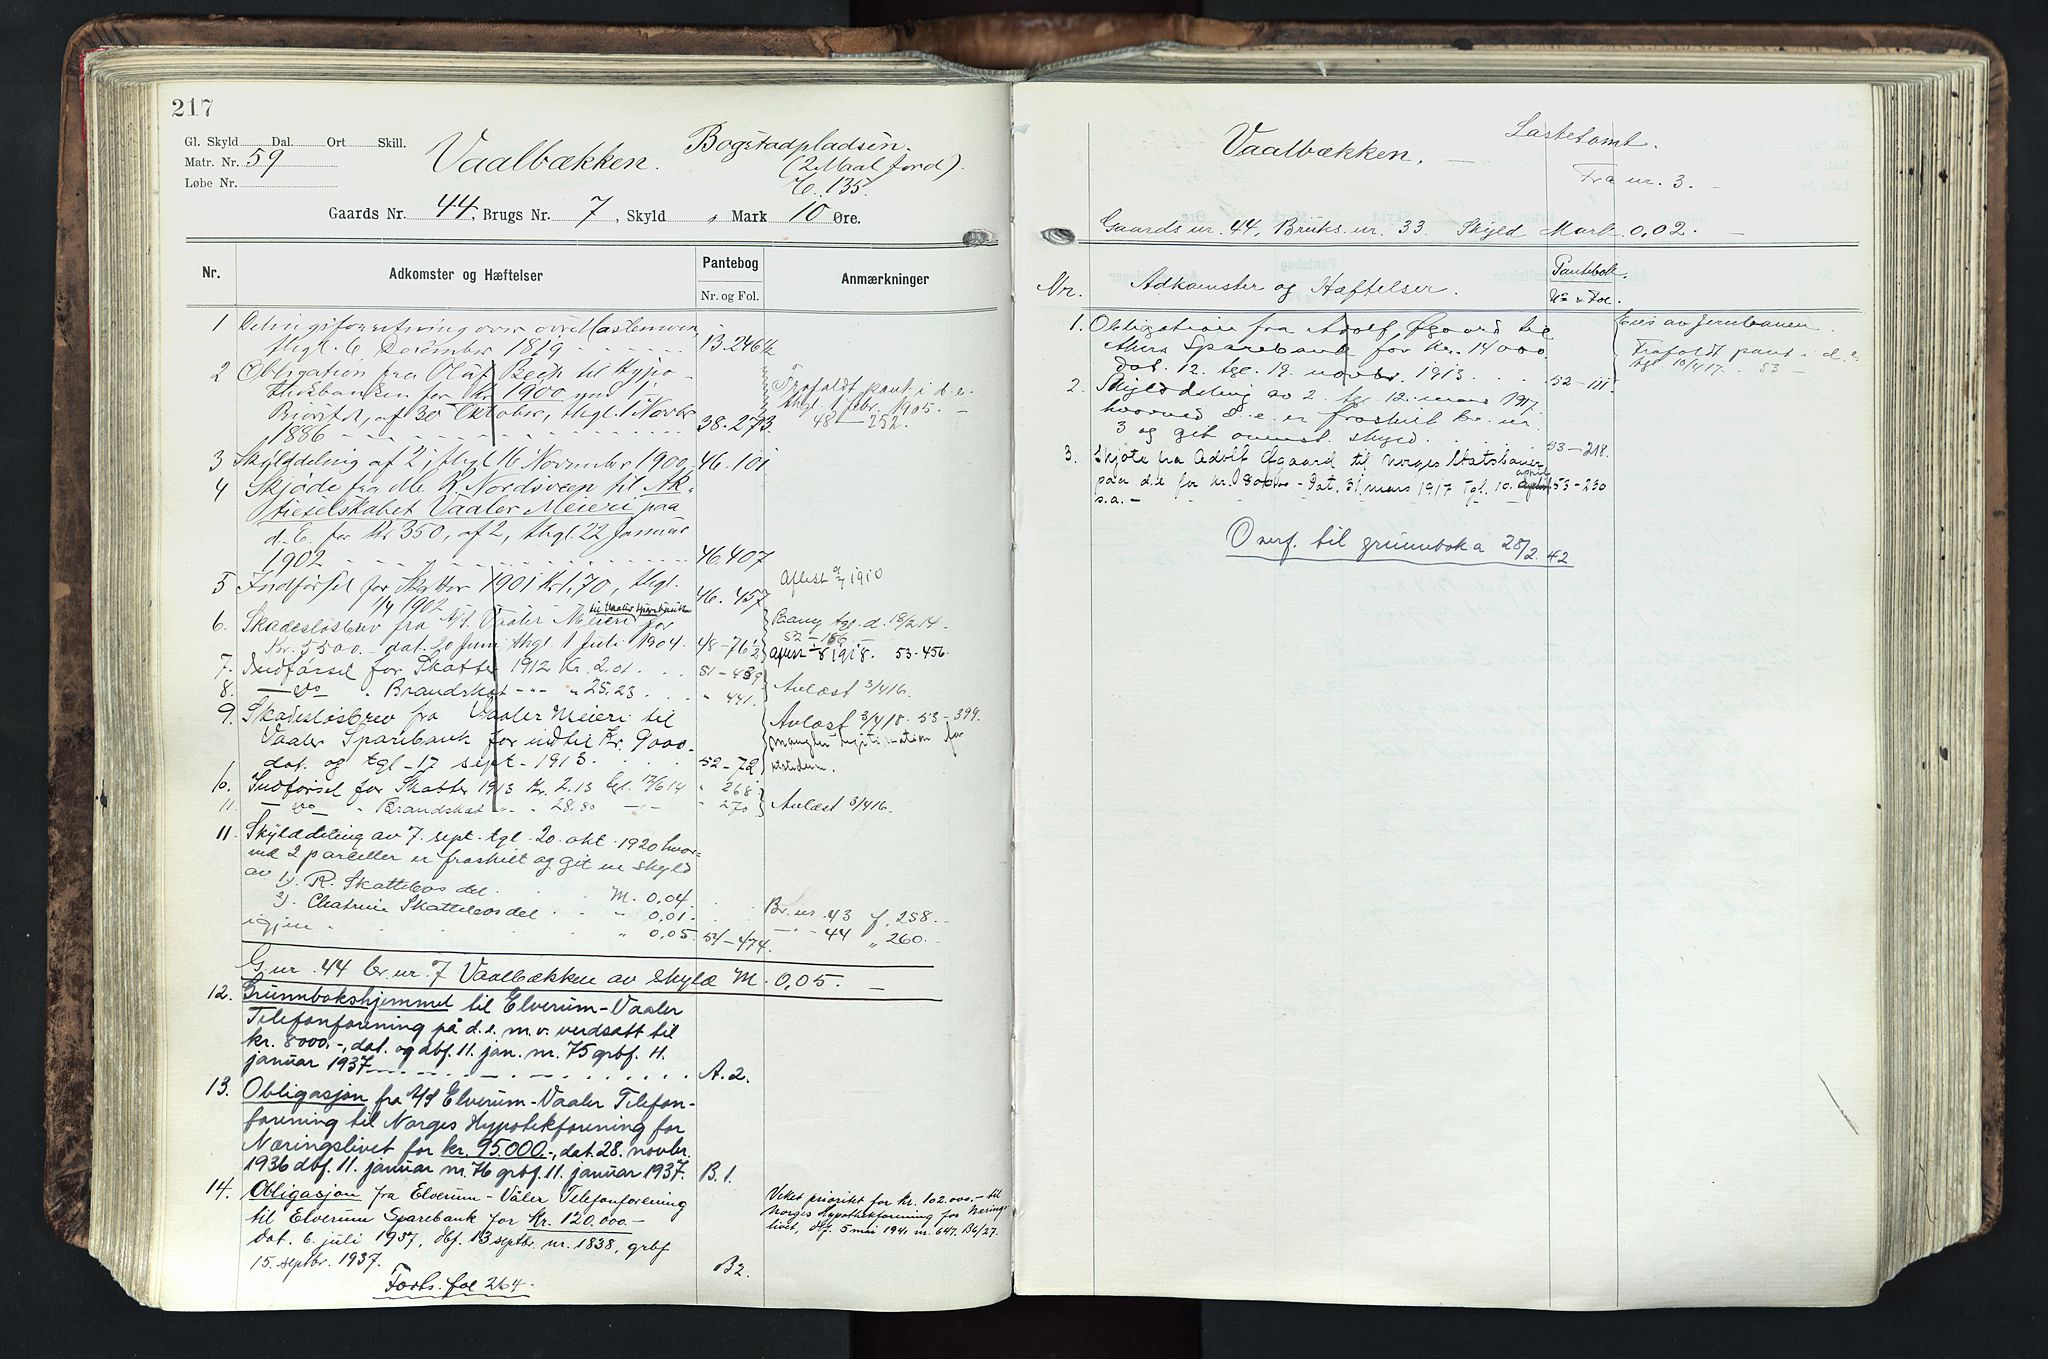 217
Gl. Skyld Dal. Ort Skill.
Matr. Nr. 59
Løbe Nr.
Vaalbækken.
Bogstadpladsen.
(2 Maal jord).
135.
Gaards Nr. 44, Brugs Nr. 7, Skyld , Mark 10 Øre.
Nr. Adkomster og Hæftelser Pantebog Anmærkninger
Nr. og Fol.
1 over
thgl. 6 December 1819 13.246
2 Obligation fra Oluf Beck til Hypo-
thekbanken for Kr 1900
Prioritet, af 30 Oktober, thgl. 1 Novbr
1886 38.273.
Frafaldt pant i d.e.
thgl. 1 febr. 1905.
48 - 252.
3 Skylddeling af 2, thgl 16 November 1900 46.101
4 Skjøde fra Ole K. Nordsveen til Ak-
tieselskabet Vaaler Meieri paa
d. E. for Kr 350, af 2, thgl. 22 Januar
1902 46.407
5 Indførsel for Skatter 1901 Kr 1,70, thgl.
1/4 1902 46.457
Aflest 1910
6. Skadesløsbrev fra A/S. Vaaler Meieri til Vaaler Sparebank for
Kr. 5500.- dat. 20 Juni thgl. 1 Juli 1904. 48-76
tgl. d. 19/2 14.
52-186
1918. 53.456.
7. Indførsel for Skatter 1912 Kr. 2.01. 51-439
8. - do " Brandskat " 25.23 " 441.
Avlæst 3/4 16.
9. Skadesløsbrev fra Vaaler Meieri til
Vaaler Sparebank for indtil Kr. 9000.-
dat. og tgl. 17 sept. 1913. 52-72
Avlæst 3/4 18. 53-399.
mangler legitimation for
10. Indførsel for Skatter 1913 Kr. 2.13 tgl. 17/6 14 " 268
11. - do " Brandskat " 28.80 " 270
Avlæst 3/4 16.
11. Skylddeling av 7. sept. tgl. 20. okt. 1920 hvor-
ved 2 parceller er fraskilt og git ny skyld
av 1). R. Skattebos del. M. 0,04.
2). Skattebos del " 0,01. Br. nr. 43 f. 258.
igjen " 0,05. 54-474. - " - 44 " 260.
G. nr. 44 br. nr. 7 Vaalbækken av skyld M. 0,05.
12. Grunnbokshjemmel til Elverum-Vaaler
Telefonforening på d. e. m. v. verdsatt til
kr. 8000.-, dat. og dbf. 11. jan. nr. 75 grbf. 11.
januar 1937 A. 2.
13. Obligasjon fra A/S Elverum-Vaaler Telefon-
forening til Norges Hypotekforening for
Næringslivet for kr. 95.000.-, dat. 28. novbr.
1936 dbf. 11. januar nr. 76 grbf. 11. januar 1937. B. 1.
14. Obligasjon fra Elverum-Våler Telefonforening
til Elverum Sparebank for Kr. 120.000.-
dat. 6. juli 1937, dbf. 13 septbr. nr. 1838, grbf
15. septbr. 1937. B 2.
Veket prioritet for kr. 102.000.- til
Norges Hypothekforening for Nærings-
livet, dbf. 5 mai 1941 nr. 647. B 6/27.
Forts. fol 264.
Vaalbækken. - Lastetomt.
Fra nr. 3. -
Gaards nr. 44, Bruks. nr. 33. Skyld Mark 0,02. -
Nr. Adkomster og Hæftelser. Pantebok.
Nr. & Fol.
1. Obligation fra Adolf Øgaard til
Sparebank for kr. 14000
dat. 12. tgl. 19. novbr. 1913. 52-111.
Eies av Jernbanen.
Frafaldt pant i d. e.
tgl 10/4 17. 53 -
2. Skylddeling av 2. tgl. 12. mars 1917.
hvorved d. e. er fraskilt br. nr.
3 og git ovenst. skyld. 53-218.
3. Skjøte fra Adolf Øgaard til Norges Statsbaner
paa d.e for kr. - Dat. 31. mars 1917 Tgl. 10. april 53-230
s.a. -
Overf. til grunnboka 28/2. 42